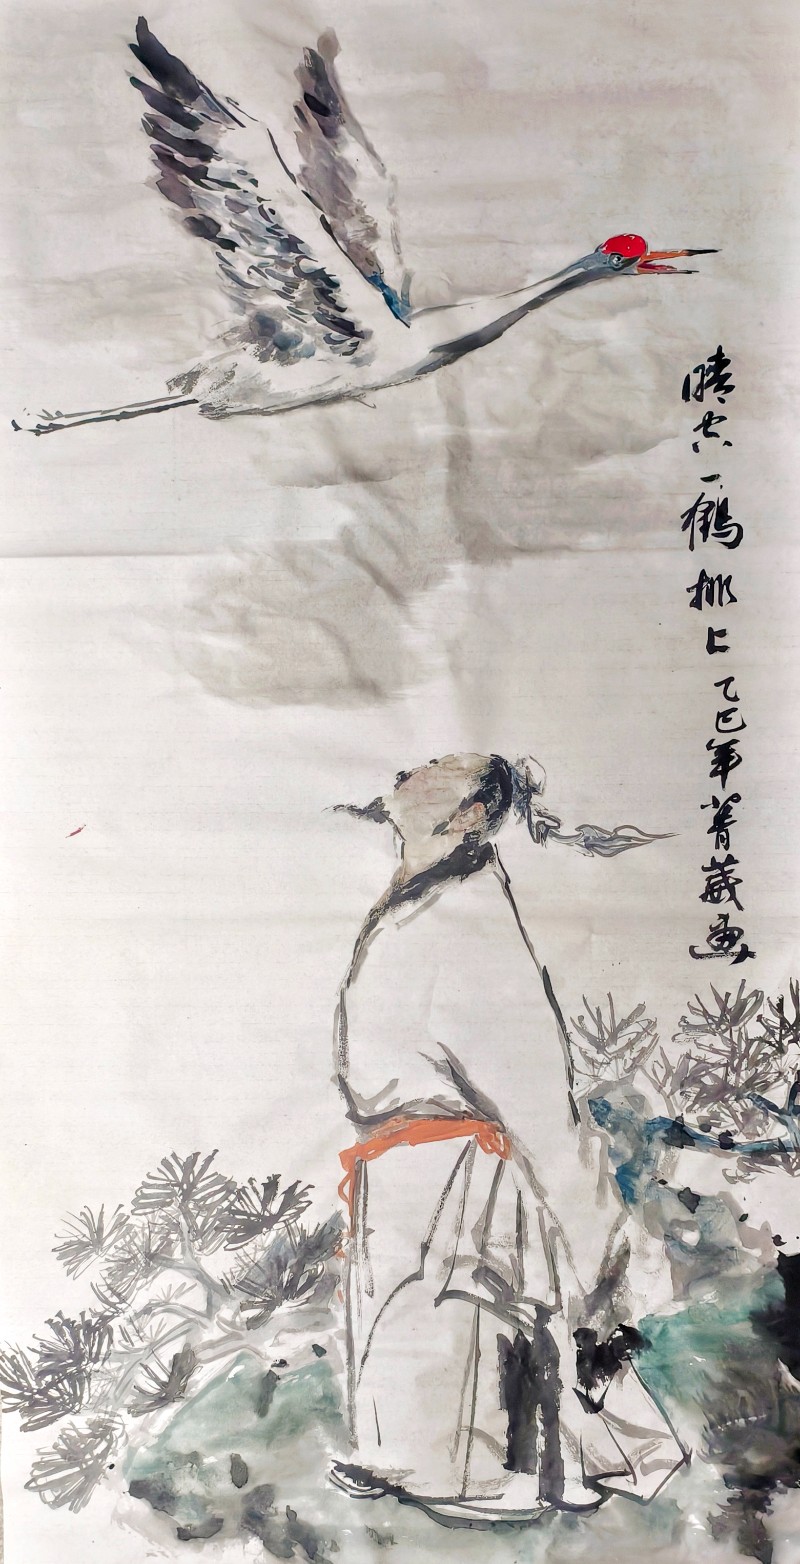 晴空一鹤排上乙巳年菁葳画